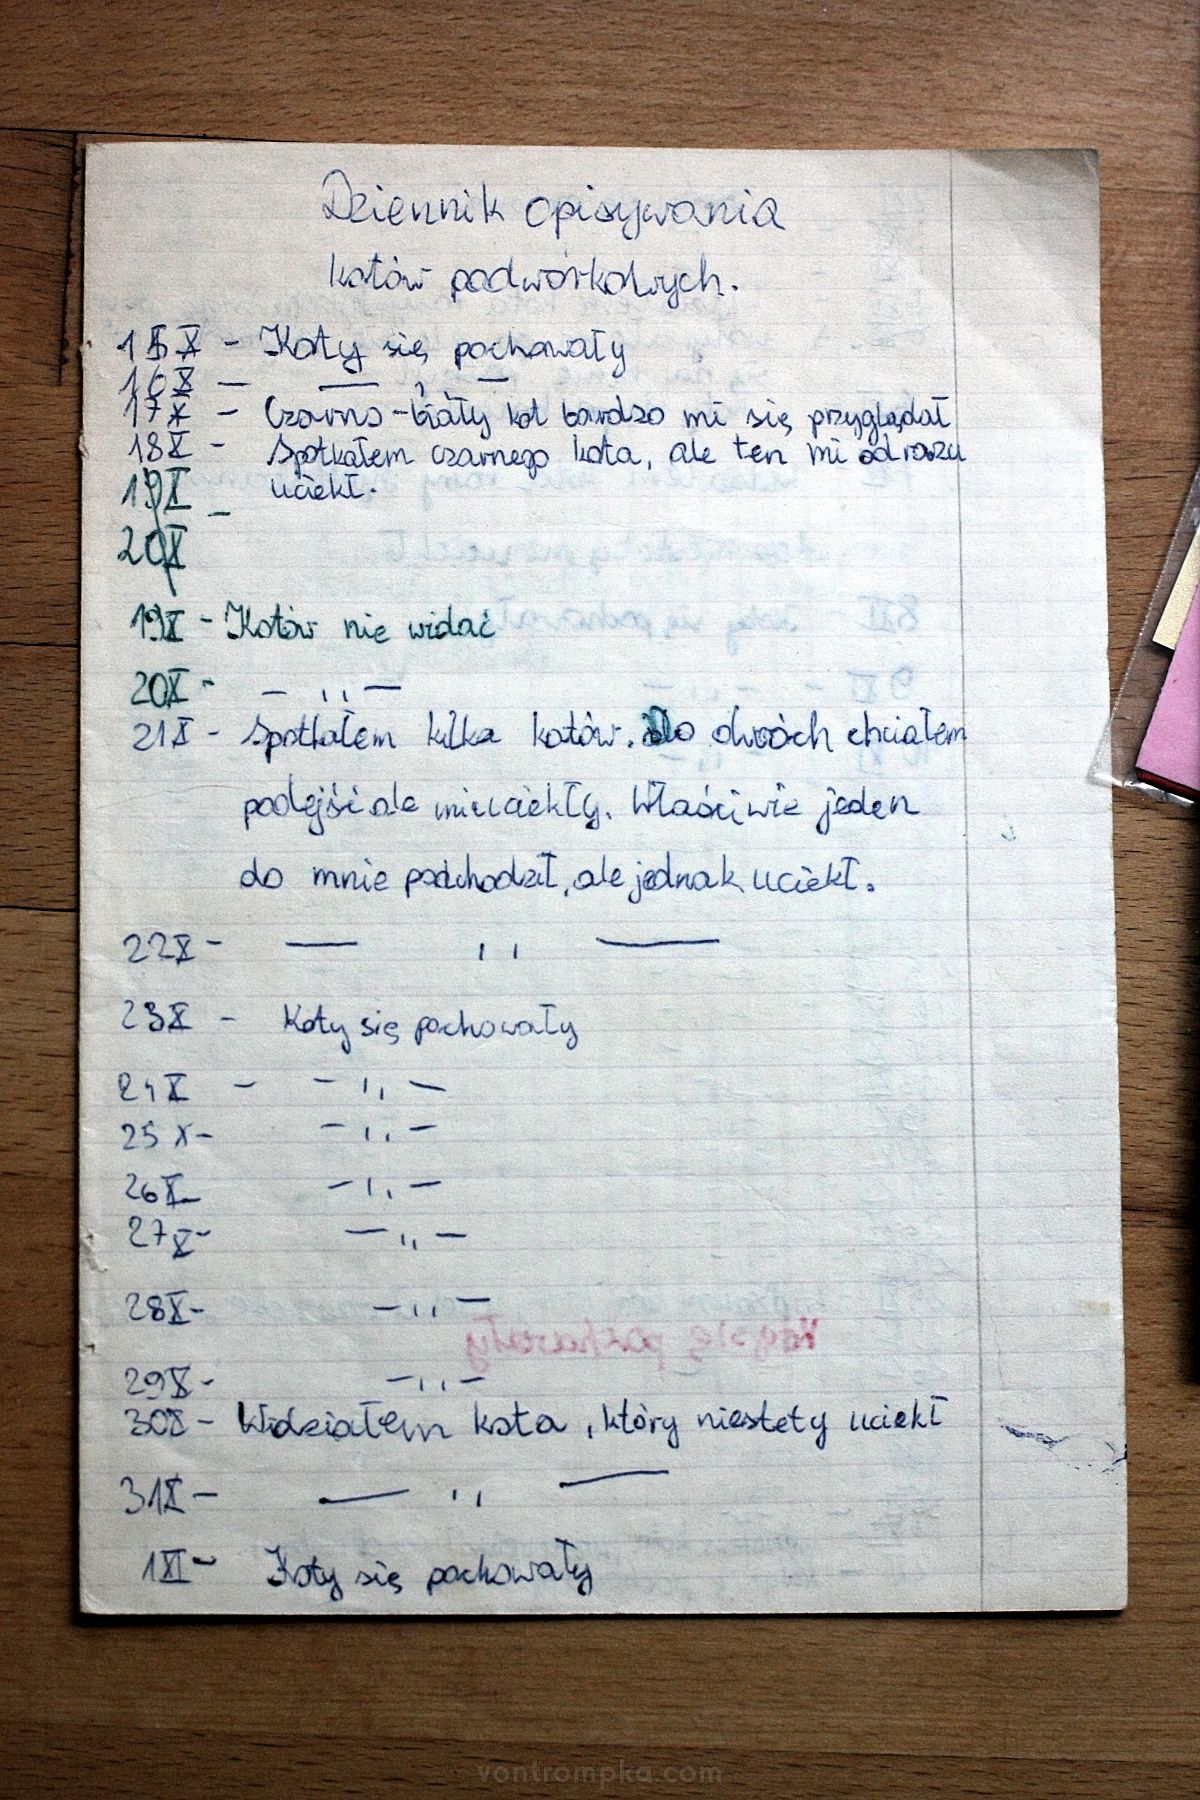 Dziennik opisywania
kotów podwórkowych.
15X - Koty się pochowały
16X — — , —
17X - Czarno-biały kot bardzo mi się przyglądał
18X - Spotkałem czarnego kota, ale ten mi od razu
19X - uciekł.
20X
19X - Kotów nie widać
20X - — ,, —
21X - Spotkałem kilka kotów. Do dwóch chciałem
podejśi ale mi uciekły. Właściwie jeden
do mnie podchodził, ale jednak uciekł.
22X - — ,, —
23X - Koty się pochowały
24X - — ,, —
25X - — ,, —
26X - — ,, —
27X - — ,, —
28X - — ,, —
29X - — ,, —
30X - Widziałem kota, który niestety uciekł
31X - — ,, —
1XI - Koty się pochowały
vontrompka.com